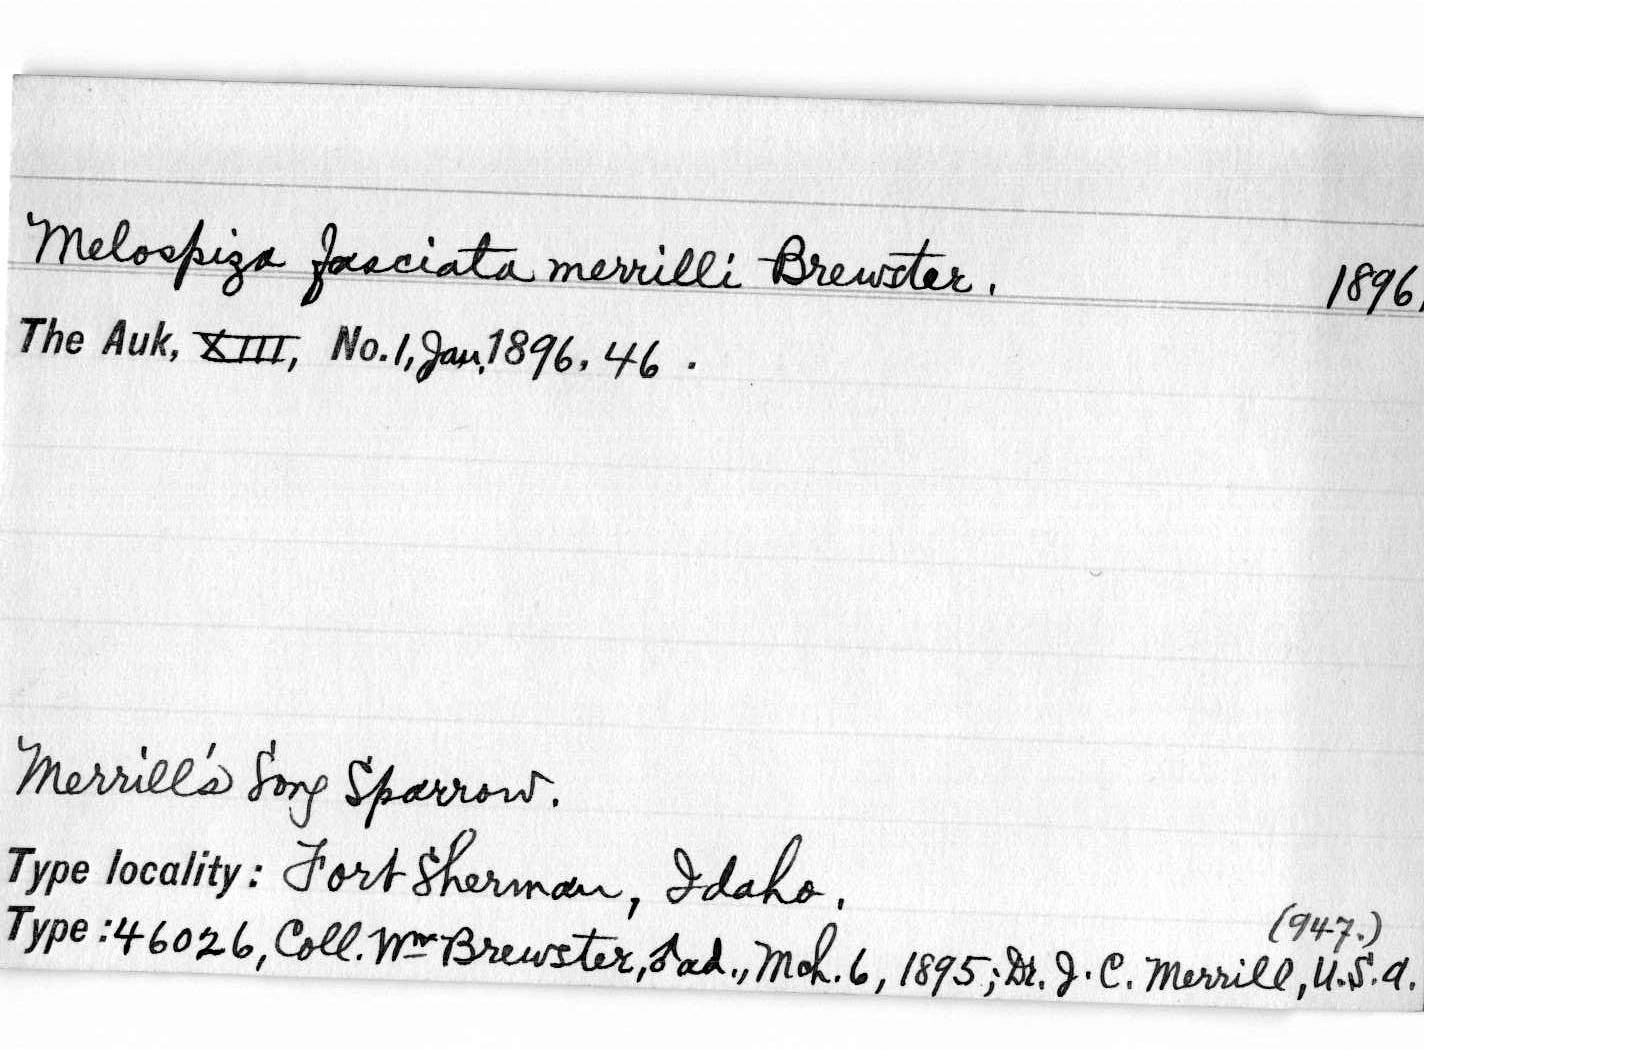 Melospiza fasciata merrilli Brewster. 1896.
The Auk, XIII, No. 1, Jan, 1896, 46.
Merrill's Song Sparrow.
Type locality: Fort Sherman, Idaho.
(947.)
Type: 46026, Coll. Wm Brewster, ad., Mch. 6, 1895; Dr. J. C. Merrill, U.S.A.